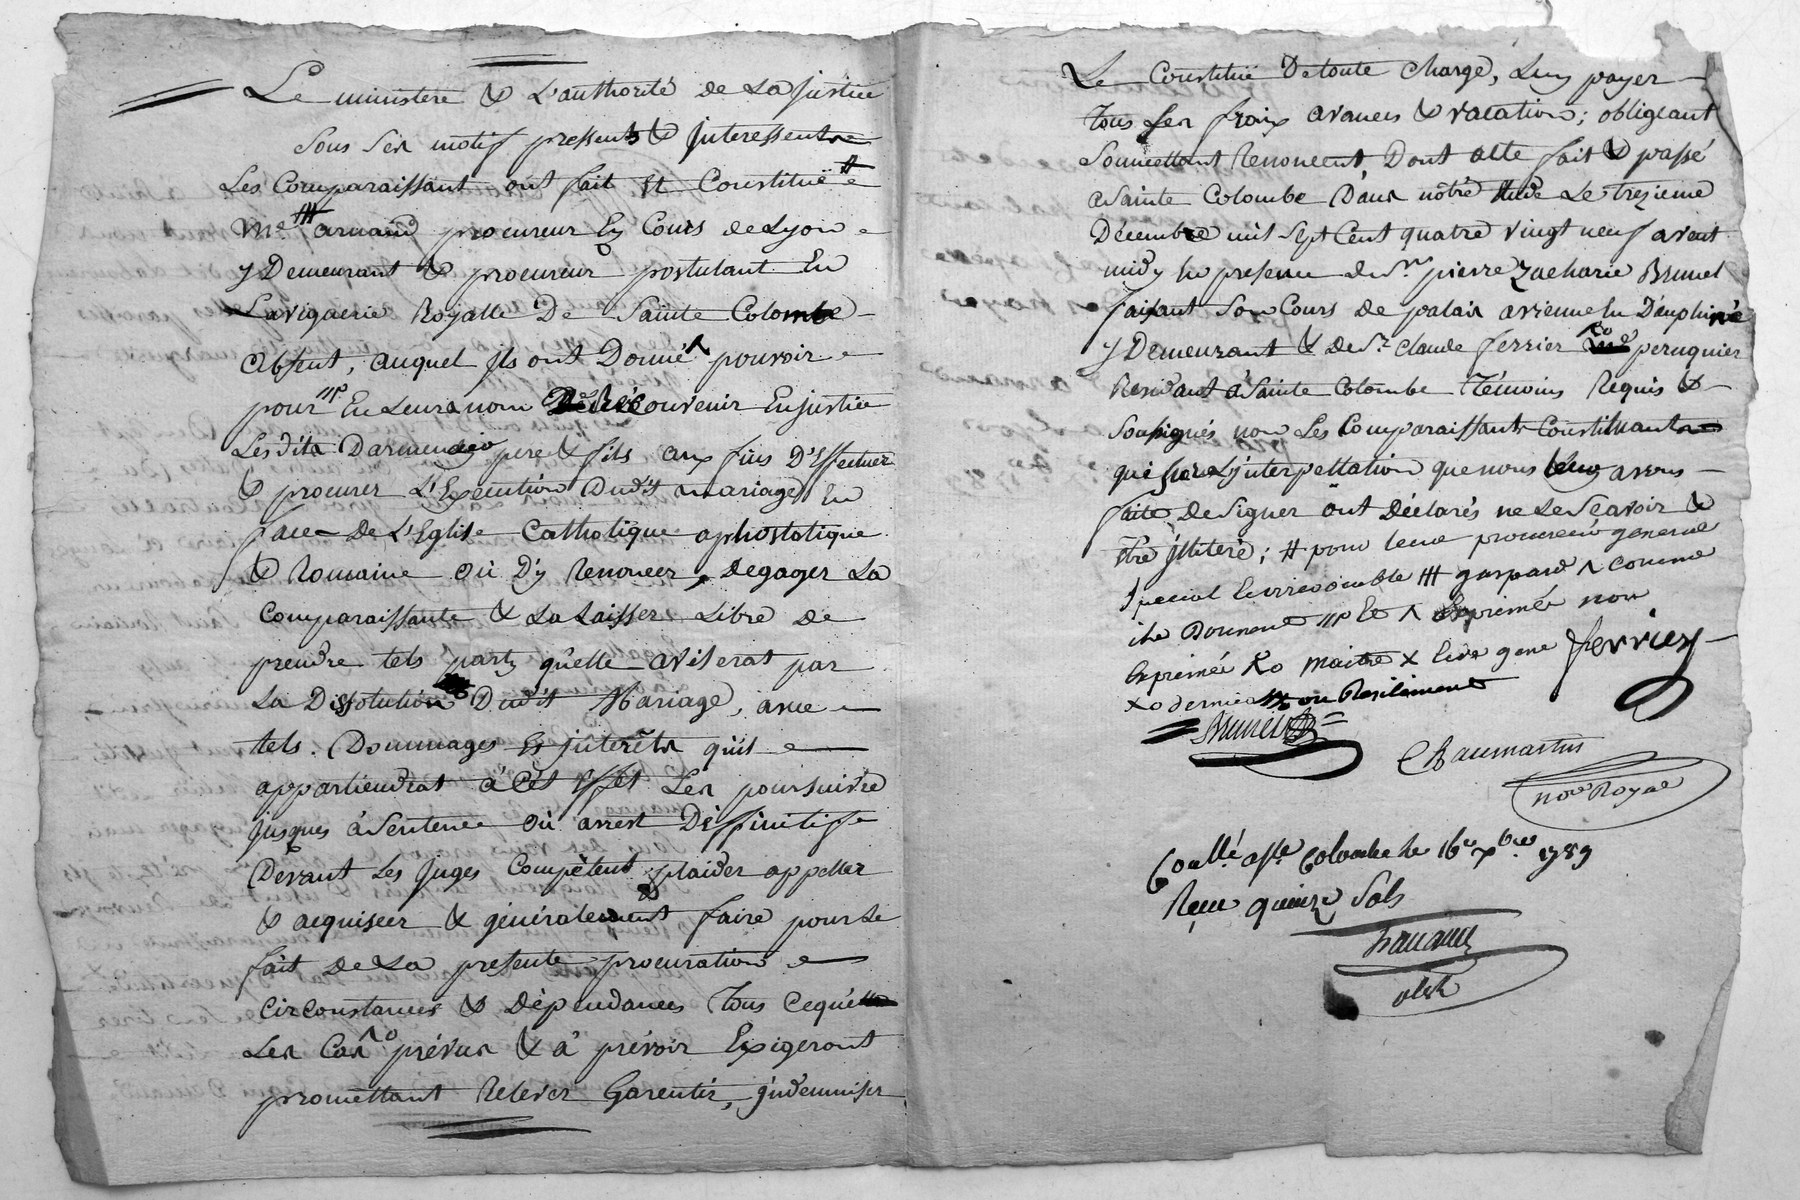 Le ministere & L'authorité de La justice
Sous Ses motif pressents & jnteressents
Les Comparaissant ont fait Et Constitué #
Me ## arnaud procureur Ez Cours de Lyon
y Demeurant & procureur postulant En
La viguerie Royalle De Sainte Colombe
absent, auquel jls ont Donné ^ pouvoir
pour En Leurs nom convenir En justice
Lesdits Darmencio pere & fils aux fins D'Effectuer
& procurer L'Execution Dudit mariage En
face De L'Eglise Catholique aphostolique
& Romaine où D'y Renoncer, Degager La
Comparaissante & La Laisser Libre de
prendre tels party qu'elle aviserat par
La Dissolution Dudit Mariage, avec
tels. Dommages Es jnterêts qu'il
appartiendrat à Cet Effet Les poursuivre
jusques à Sentence où arrest Deffinitifs
Devant Les juges Compétent plaider appeller
& acquiscer & généralement faire pour Le
fait De La presente procuration
circonstances & Dépendances Tous Ce que
Les Cas prévus & à prévoir Exigeront
promettant Relever Garentir, jndemniser
Le Constitué De toute Charge, Luy payer
Tous Ses fraix avances & vacations; obligeant
Soumettant Renoncent, Dont acte fait & passé
a Sainte Colombe Dans nôtre Etude Le trezieme
Décembre mil Sept Cent quatre vingt neuf avant
midy En presence de Sr. pierre Zacharie Brunel
faisant Son Cours de palais a vienne En Dauphiné
y Demeurant & de Sr. Claude ferrier peruquier
Residant à Sainte Colombe Témoins Requis &
Soussignés non Les Comparaissants Constituants
qui Sur L'jnterpellation que nous Leur avons
faite De Signer ont Déclarés ne Le Scavoir &
être jlliteré; # pour Leur procureur general
Special Et irrévocable ## gaspard ^ comme
ils Donnent Et ^ Exprimée non
Exprimée maitre x Live gene ferrier
xo dernier ou Resiliment
Brunel
Chaumartin
nore Royal
Conllé a Ste Colombe le 16e xbre 1789
Reçu quinze Sols